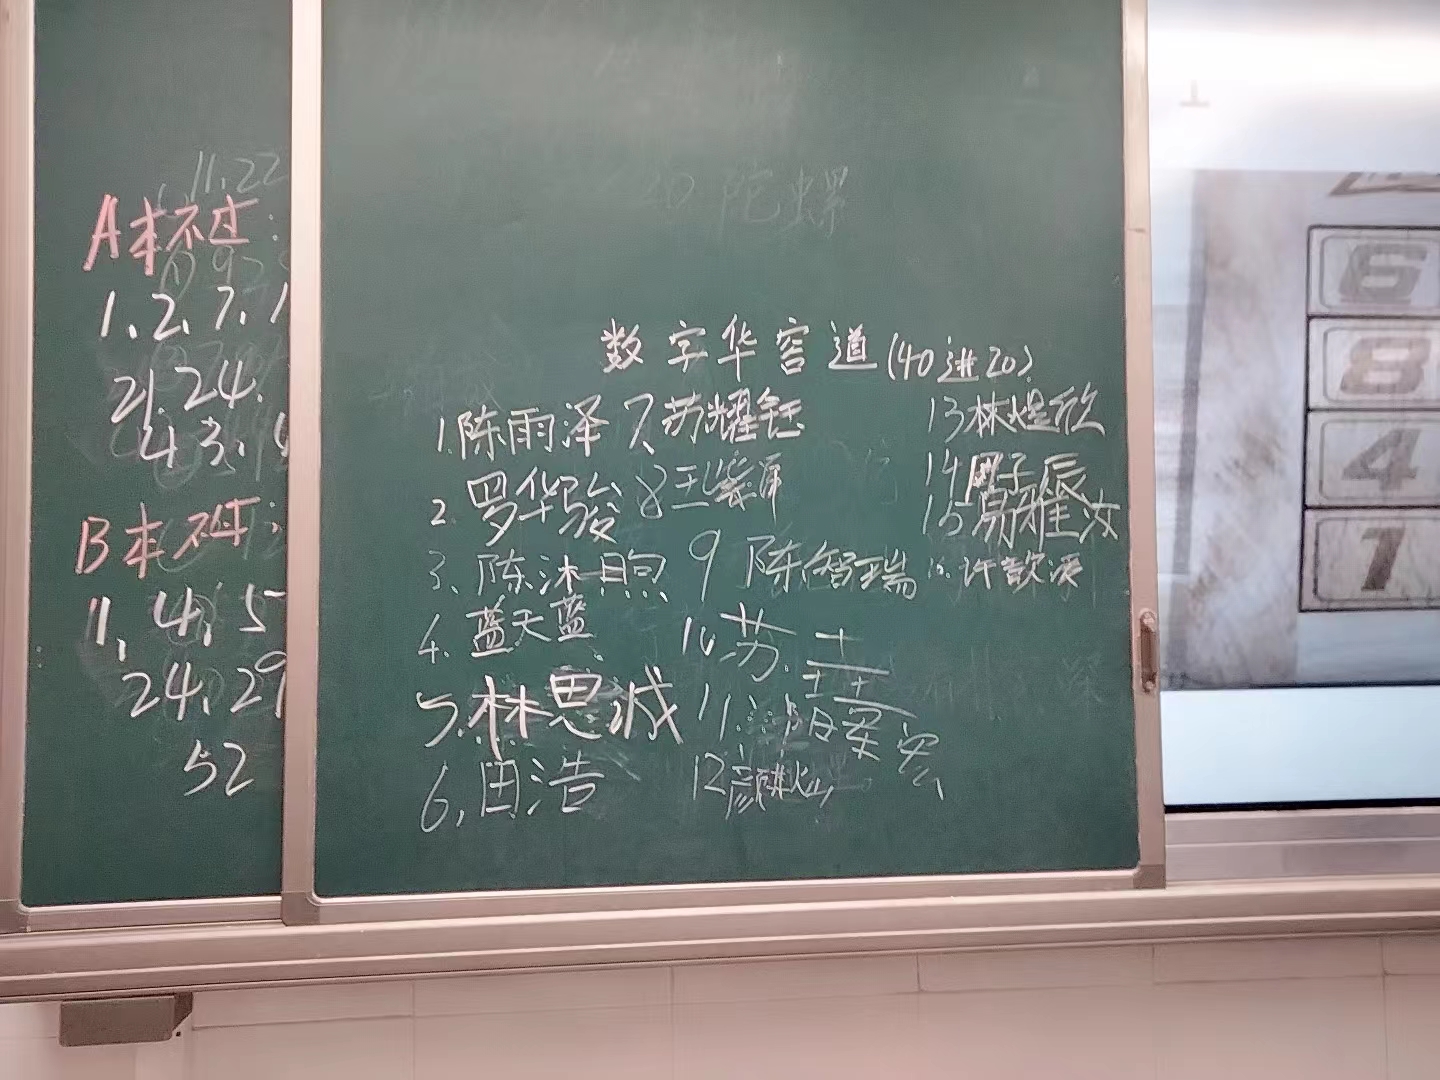 11.22
A本不过:
1、2、7、1
21.24.
43.4
B本不过:
1、4、5
24、29
52
20 陀螺
数字华容道(40进20)
1.陈雨泽
2.罗华骏
3、陈沐煦
4.蓝天蓝
5.林思诚
6,田浩
7.苏耀钰
8王紫泽
9 陈智瑞
10苏
11
12颜
13林煜欣
14周子辰
15易雅汝
许歆
6
8
4
1